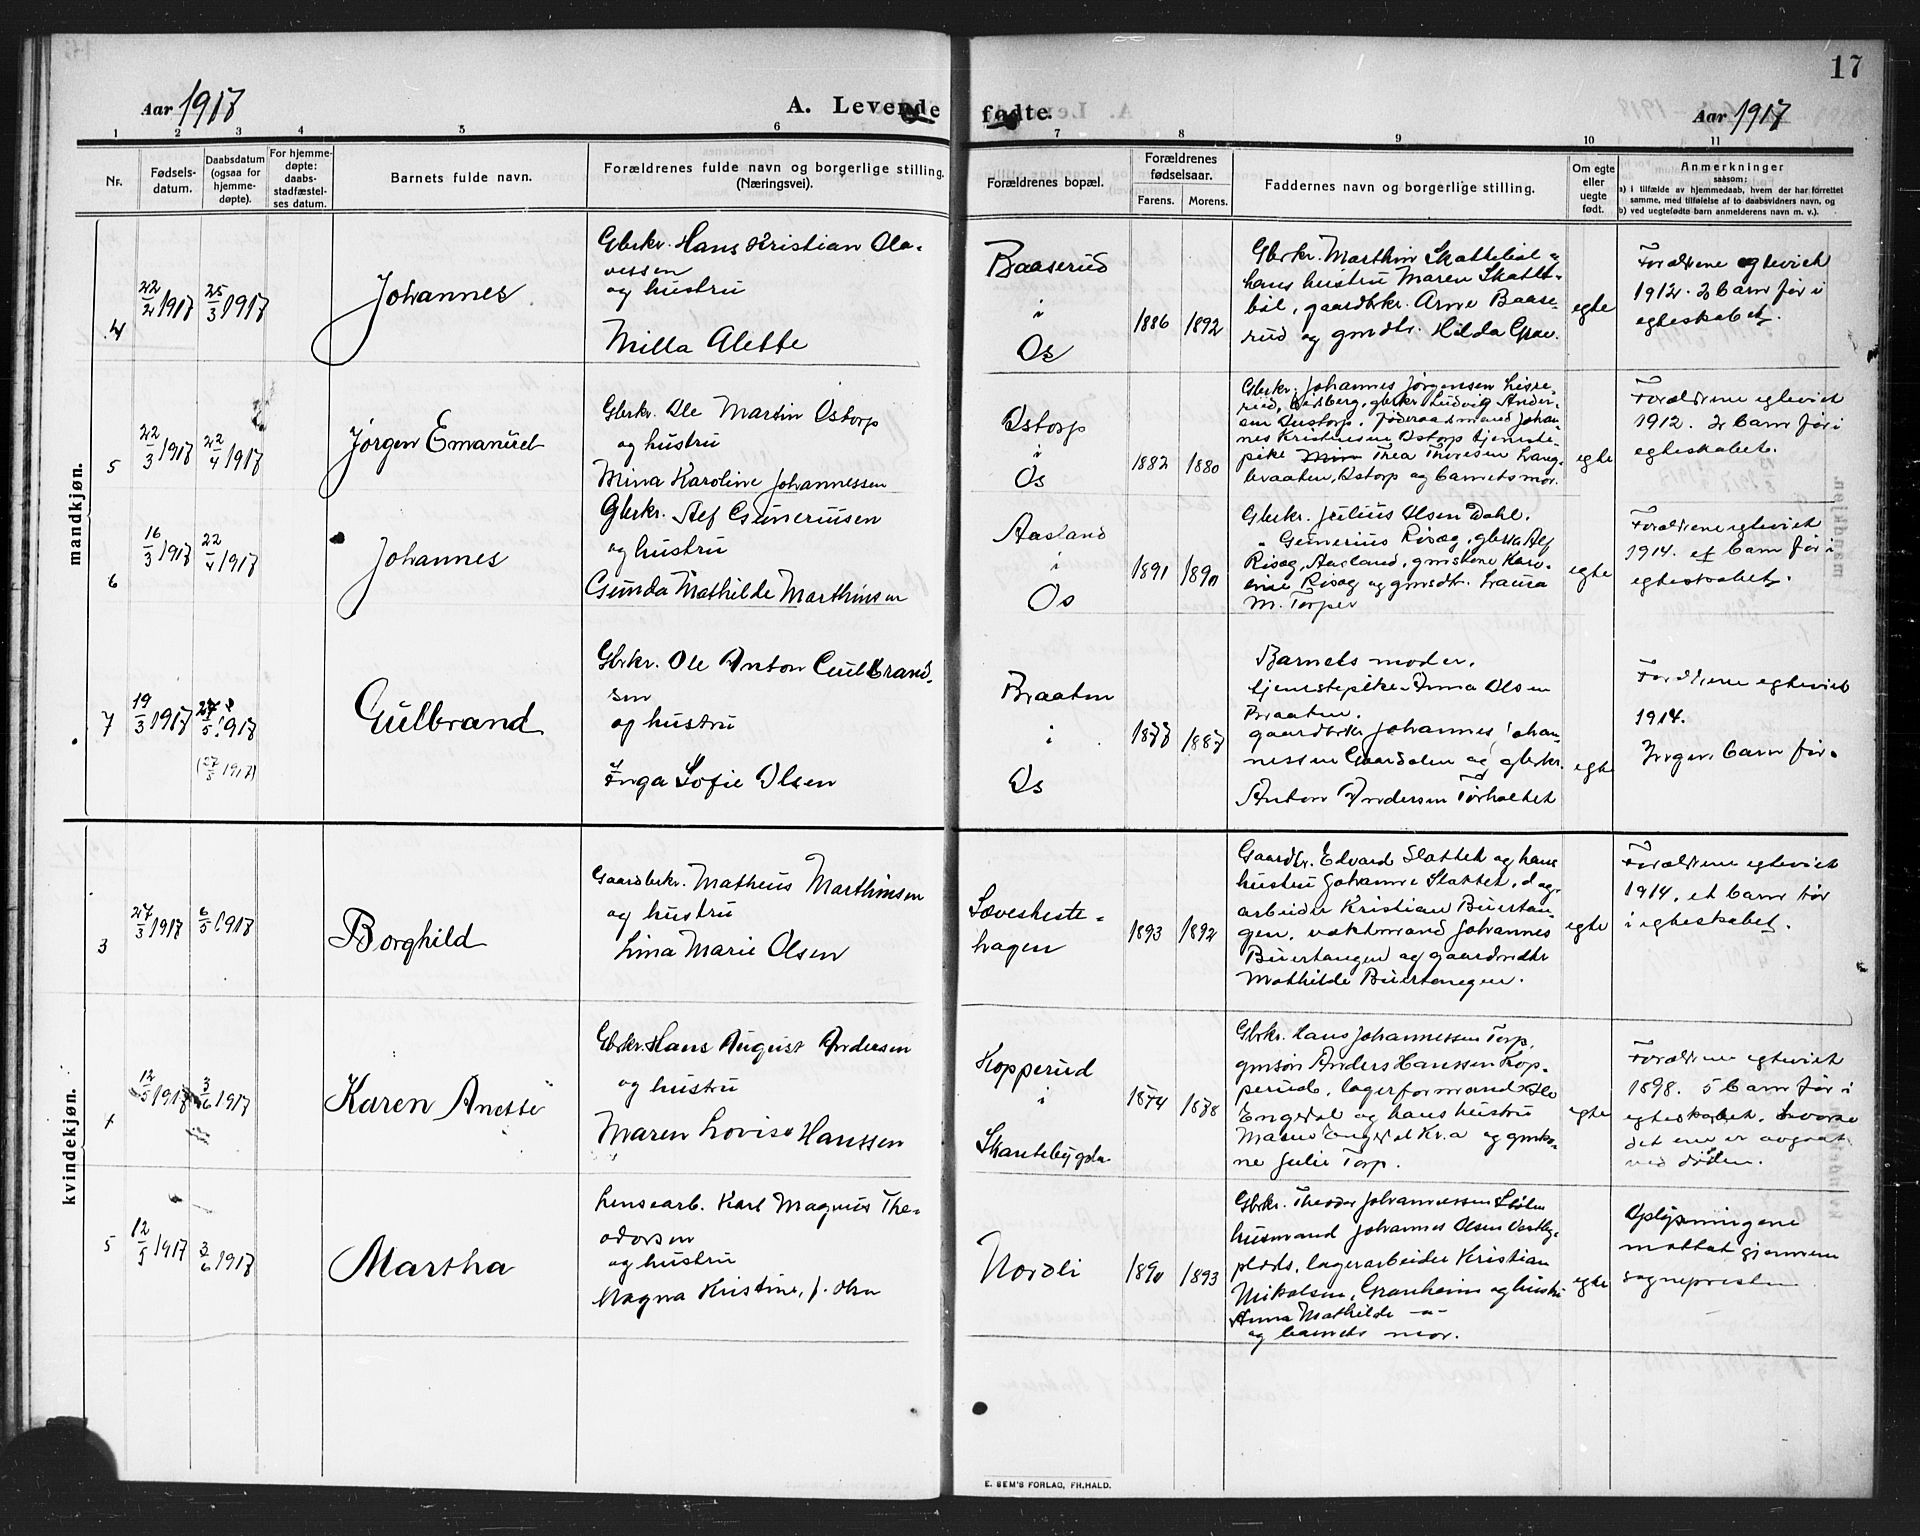 17
Aar 1917
A. Levende fødte.
Aar 1917
1 2 3 4 5 6 7 8 9 10 11
Nr.
Fødsels-
datum.
Daabsdatum
(ogsaa for
hjemme-
døpte).
For hjemme-
døpte:
daabs-
stadfæstel-
ses datum.
Barnets fulde navn.
Forældrenes fulde navn og borgerlige stilling
(Næringsvei).
Forældrenes bopæl.
Forældrenes
fødselsaar.
Farens. Morens.
Faddernes navn og borgerlige stilling.
Om egte
eller
uegte
født.
Anmerkninger
saasom:
a) i tilfælde av hjemmedaab, hvem der har forrettet
samme, med tilføielse af to daabsvidners navn, og
b) ved uegtefødte barn anmelderens navn m. v.).
mandkjøn.
4
22/2 1917
25/3 1917
Johannes
Gbrkr. Hans Kristian Ola-
vessen
og hustru
Milla Alette
Baaserud
i
Os
1886 1892
Gbrkr. Marthin Skattebøl og
hans hustru Maren Skatte-
bøl, gaardbrkr. Arne Baase-
rud og gmdtr. Hilda
egte
Forældrene egteviet
1912. 2 barn før i
egteskabet.
5
22/3 1917
22/4 1917
Jørgen Emanuel
Gbrkr. Ole Martin Ostorp
og hustru
Mina Karoline Johannessen
Ostorp
i
Os
1882 1880
Gbrkr. Johannes Jørgensen
gbrkr Ludvig Ander-
sen Ostorp, føderaadsmand Johan-
nes Kristiansen Ostorp tjeneste-
pike Thea Thoresen Lang-
braaten, Ostorp og barnets mor.
egte
Forældrene egteviet
1912. 2 barn før i
egteskabet.
6
16/3 1917
22/4 1917
Johannes
Gbrkr. Alf Guneriusen
og hustru
Gunda Mathilde Marthinsen
Aasland
i
Os
1891
Gbrkr. Julius Olsen Dahl,
" Gunerius Risøg, gbrkr Alf
Risøg, Aasland, gmskone Karo-
line Risøg og gmsdtr. Laura
M. Torper
egte
Forældrene egteviet
1914. et barn før i
egteskabet.
7
19/3 1917
27/5 1917
(27/5 1917)
Gulbrand
Gbrkr. Ole Anton Gulbrand-
sen
og hustru
Inga Sofie Olsen
Braaten
i
Os
1877 1887
Barnets moder,
tjenestepike Anna Olsen
Braaten,
gaardbrkr Johannes Johan-
nessen Gaardalen og gbrkr.
Anton Andersen Tørholtet
egte
Forældrene egteviet
1914.
Ingen barn før.
kvindekjøn.
3
27/3 1917
6/5 1917
Borghild
Gaardbrkr. Matheus Marthinsen
og hustru
Lina Marie Olsen
Løveskeste-
hagen
1893 1892
Gaardbr. Edvard Slattet og hans
hustru Johanne Slattet, dag-
arbeider Kristian Buertan-
gen, vaktmand Johannes
Buertangen og gaardmdtr
Mathilde Buertangen.
egte
Forældrene egteviet
1914, et barn før
i egteskabet.
4
12/5 1917
3/6 1917
Karen Anette
Gbrkr. Hans August Andersen
og hustru
Maren Lovise Hanssen
Kopperud
i
Skantebygda
1874 1878
Gbrkr. Hans Johannessen Torp,
gmsøn Anders Hanssen Kop-
perud, lagerformand Ole
Engedal og hans hustru
Engedal Kr.a og gmko-
ne Julie Torp.
egte
Forældrene egteviet
1898. 5 barn før i
egteskabet, hvorav
det ene er avgaat
ved døden.
5
12/5 1917
3/6 1917
Martha
Lensearb. Karl Magnus The-
odorsen
og hustru
Magna Kristine, f. Olsen
Nordli
1893
Gbrkr. Theodor Johannessen
husmand Johannes Olsen
plads, lagerarbeider Kristian
Mikalsen, Granheim og hustru
Anna Mathilde -"-
og barnets mor.
egte
Oplysningene
mottat gjennem
sognepresten
E. SEM'S FORLAG, FH.HALD.